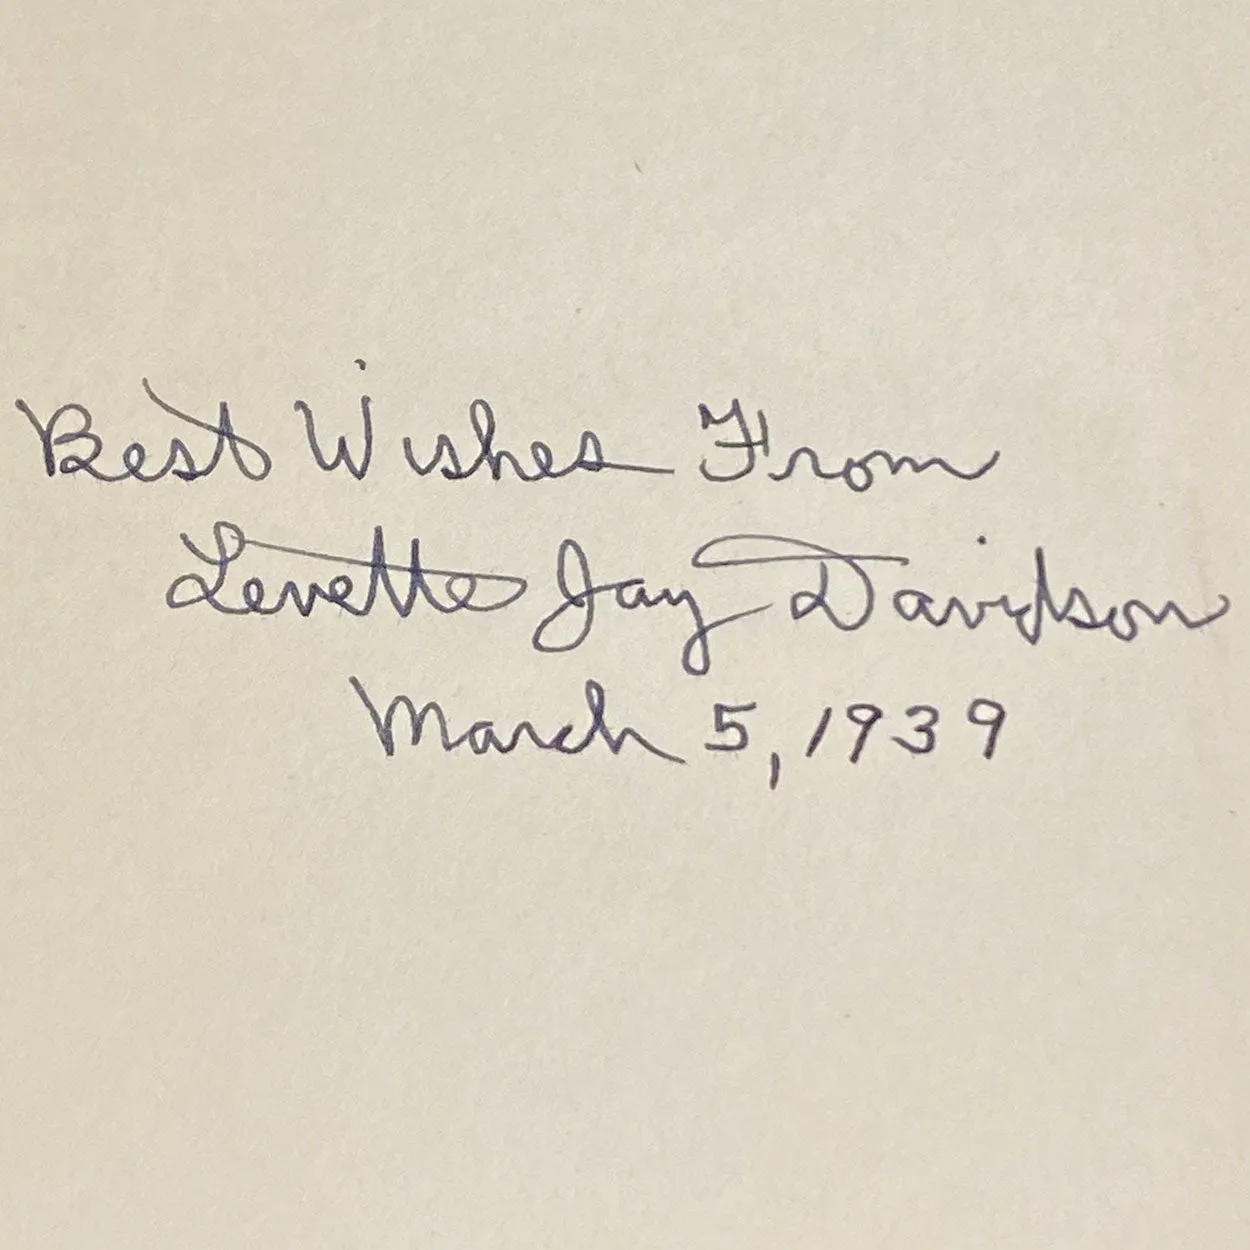 Best Wishes From
Levette Jay Davidson
March 5, 1939